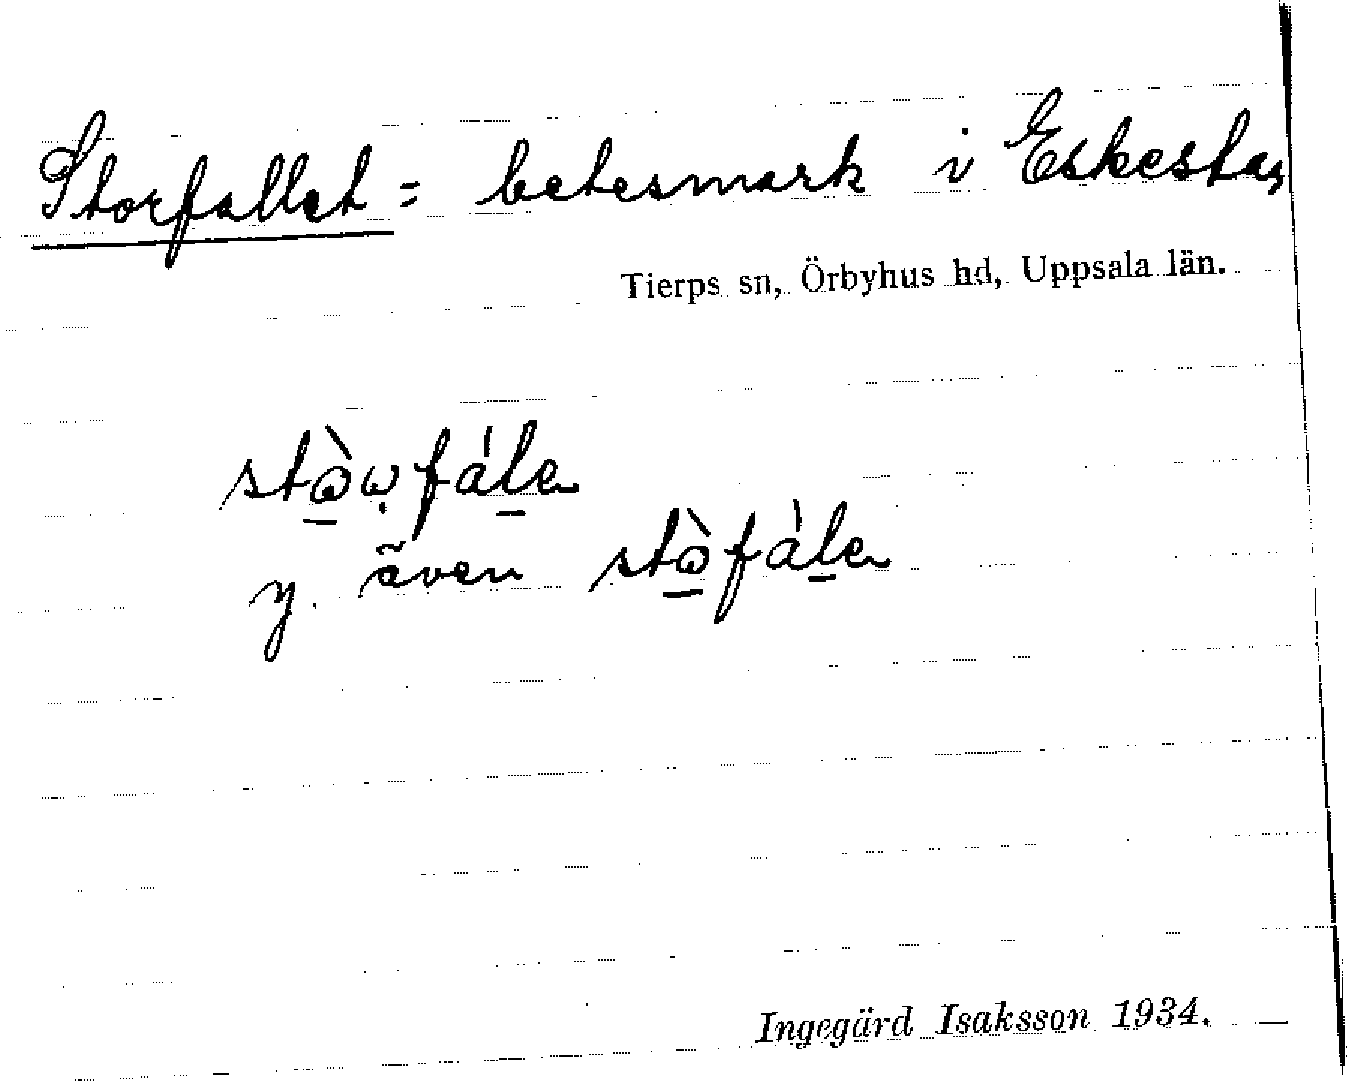 Storfallet = betesmark i Eskesta,
Tierps sn, Örbyhus hd, Uppsala län.
y. även
Ingegärd Isaksson 1934.